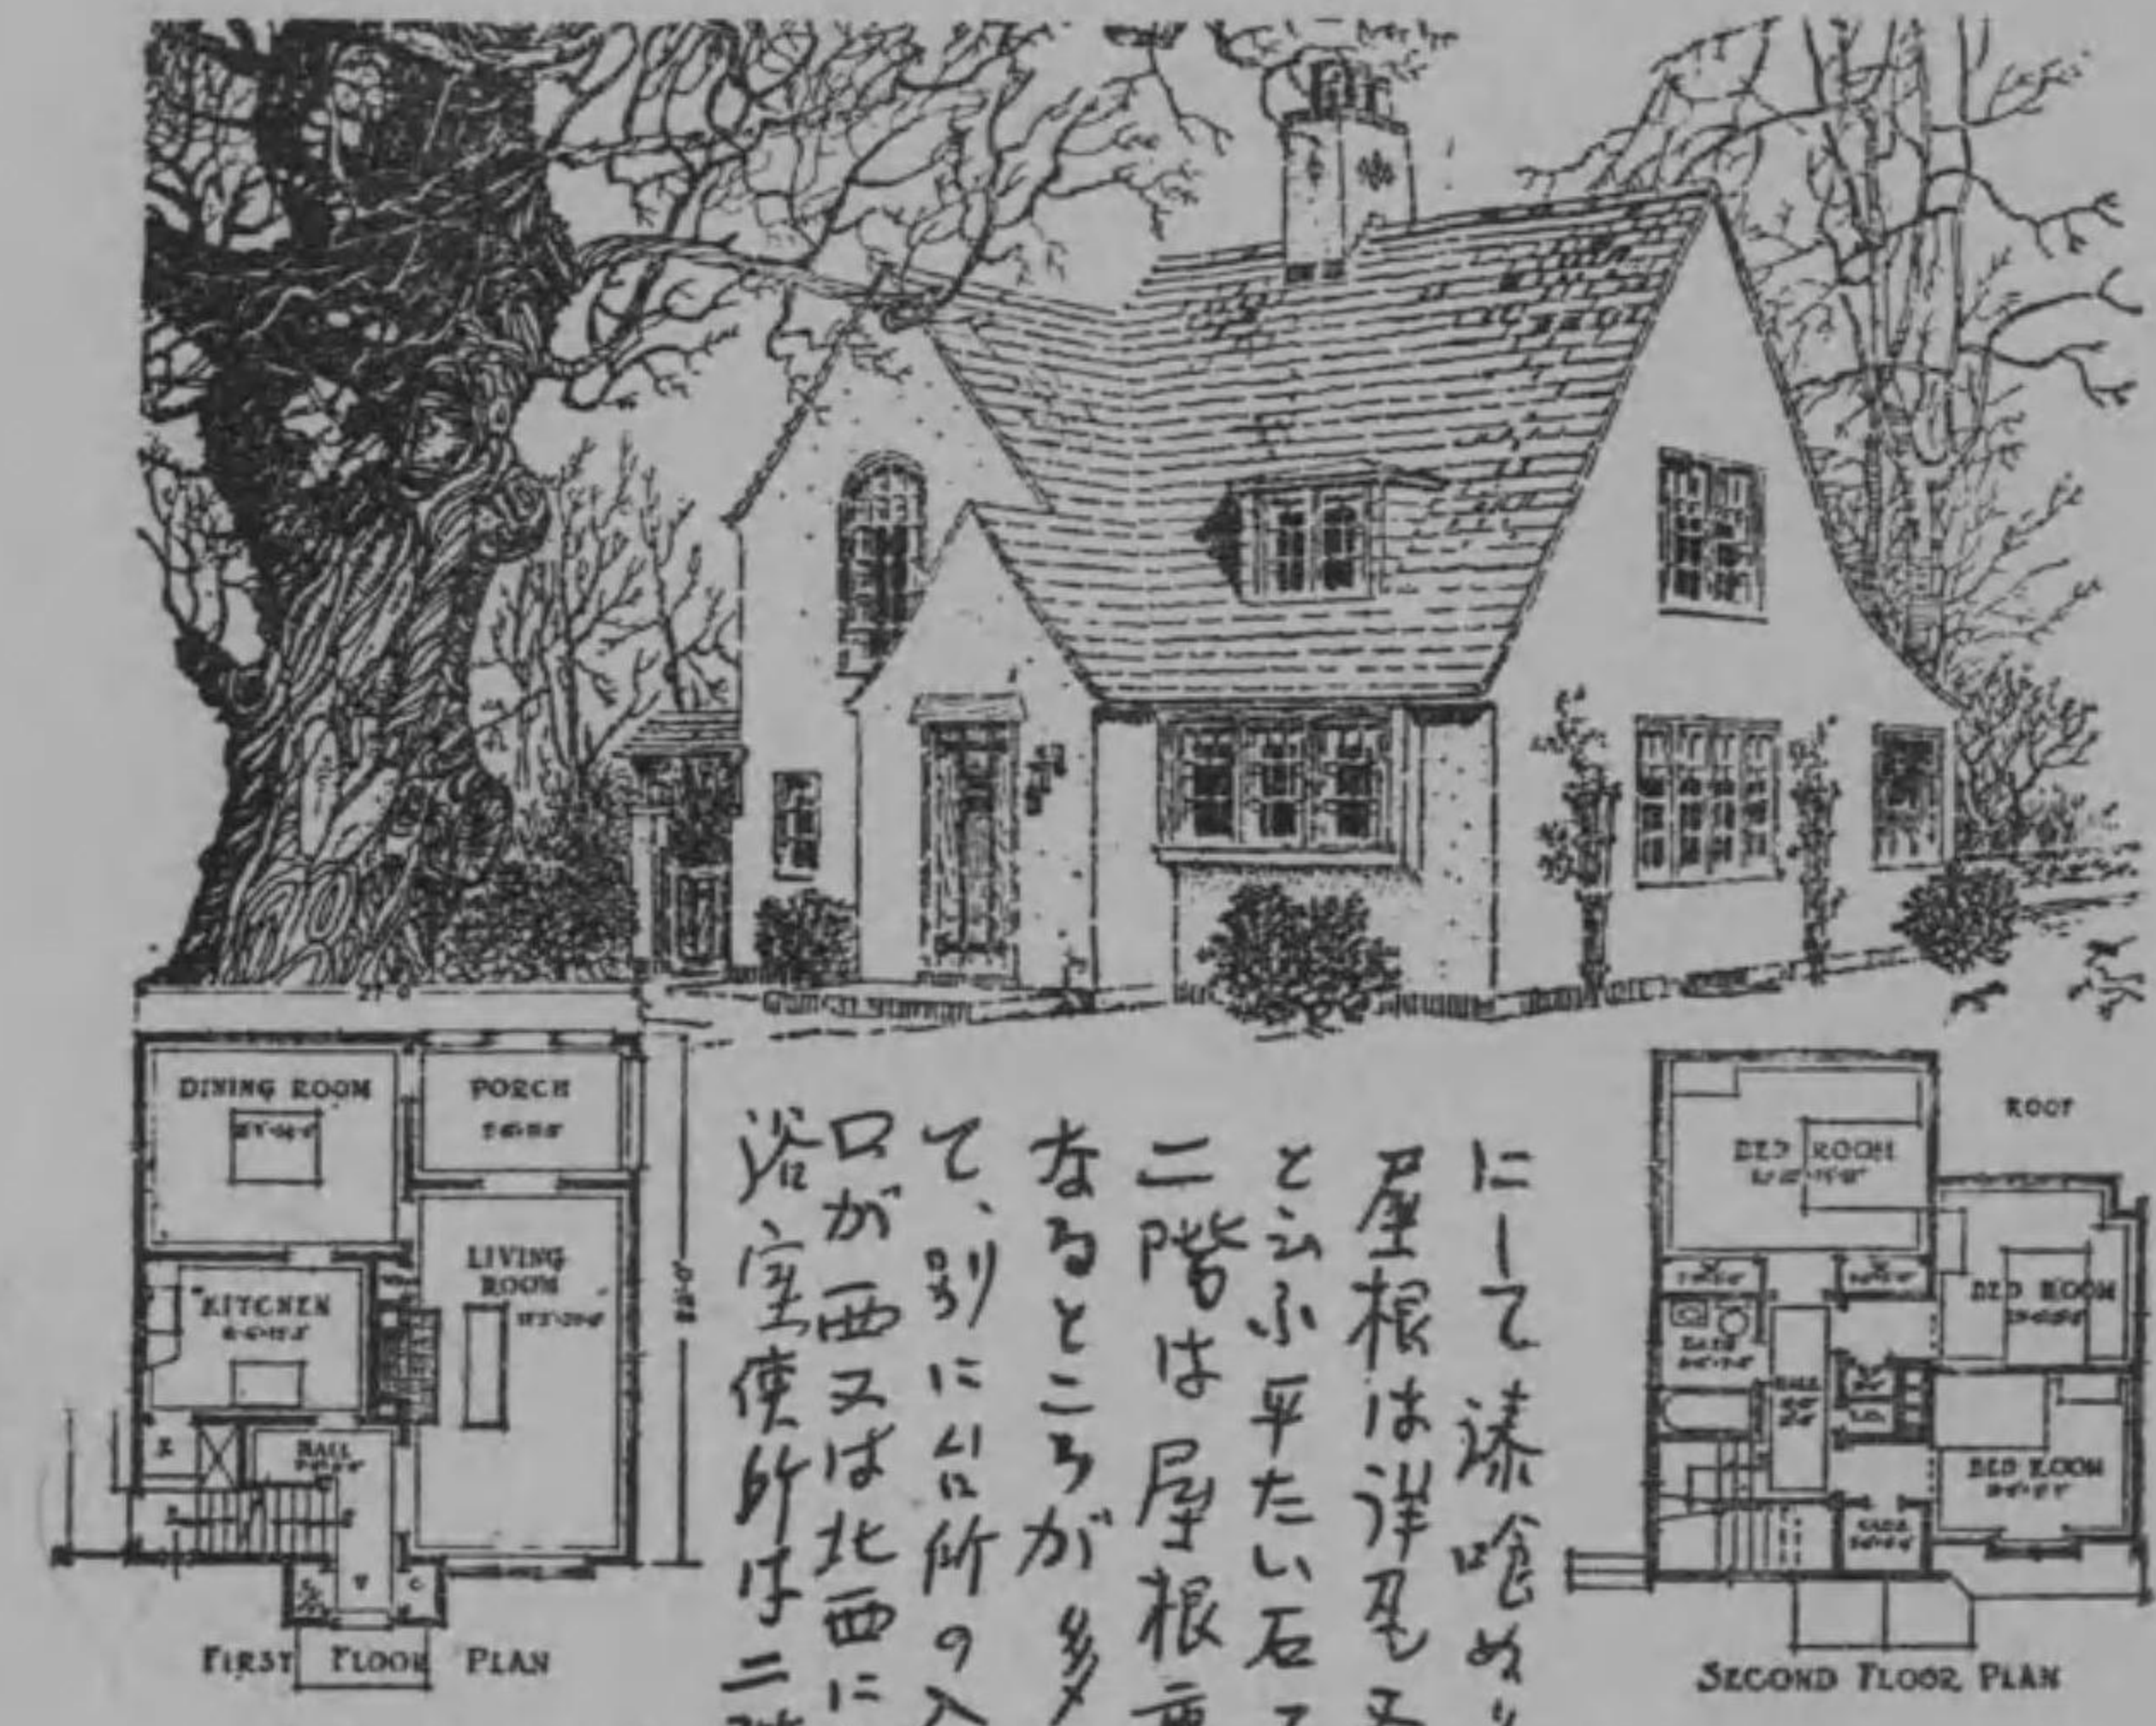 27'-0"
DINING ROOM
PORCH
LIVING
ROOM
KITCHEN
HALL
FIRST FLOOR PLAN
にして漆喰ぬり
屋根は洋瓦又
と云ふ平たい石で
二階は屋根裏
なるところが多
て、別に台所の入
口が西又は北西に
浴室便所は二階
ROOF
BED ROOM
BED ROOM
BATH
HALL
BED ROOM
SECOND FLOOR PLAN